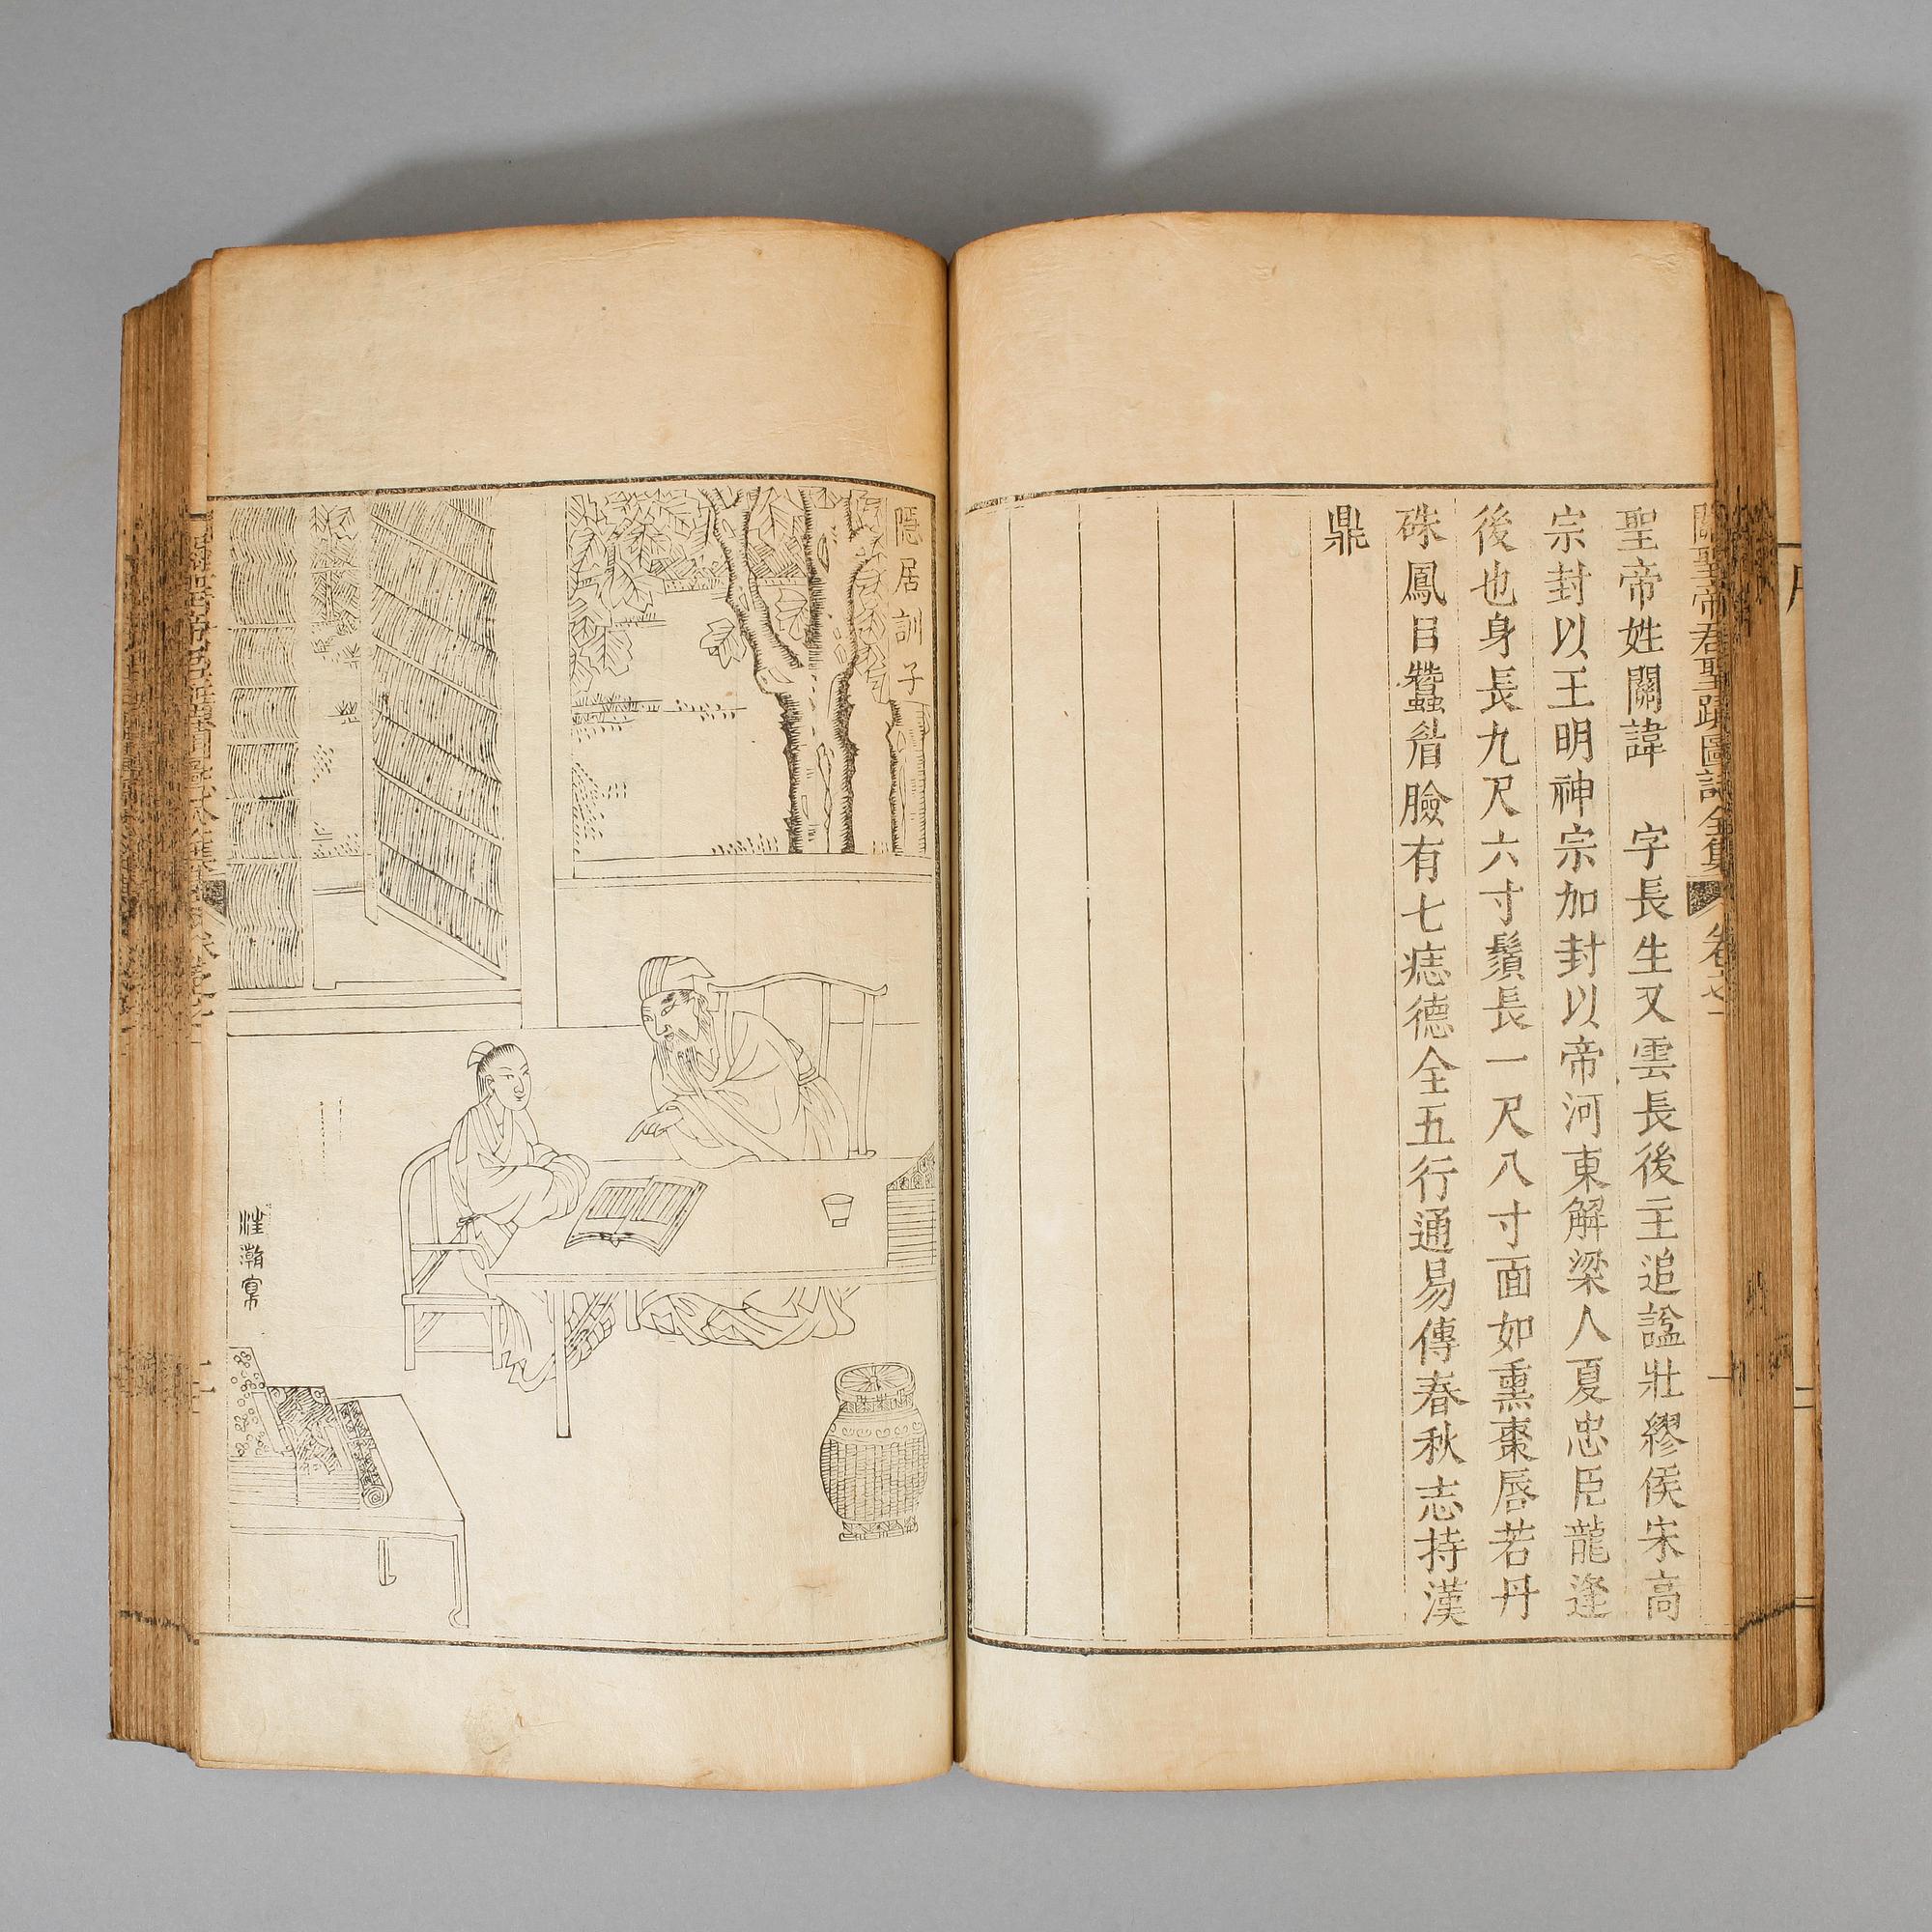 關聖帝君聖蹟圖誌全集 卷之一
聖帝姓關諱　字長生又雲長後主追諡壯繆侯宋高
宗封以王明神宗加封以帝河東解梁人夏忠臣龍逄
後也身長九尺六寸鬚長一尺八寸面如熏棗唇若丹
硃鳳目蠶眉臉有七痣德全五行通易傳春秋志持漢
鼎
隱居訓子